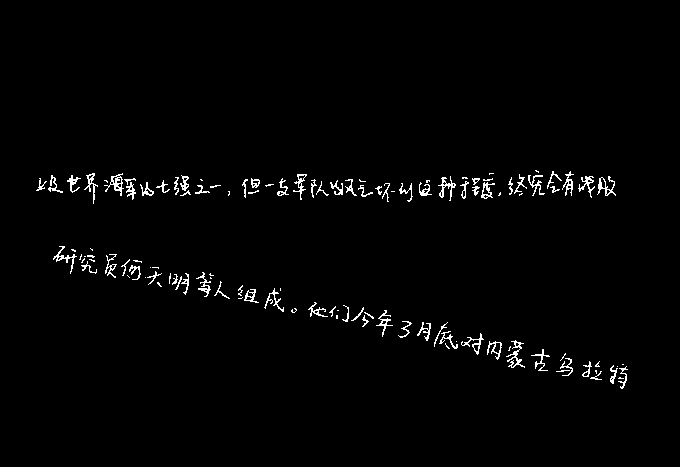 世界海军的七强之一，但一支军队的风气坏到这种程度，终究会有战败
研究员何天明等人组成。他们今年3月底对内蒙古乌拉特